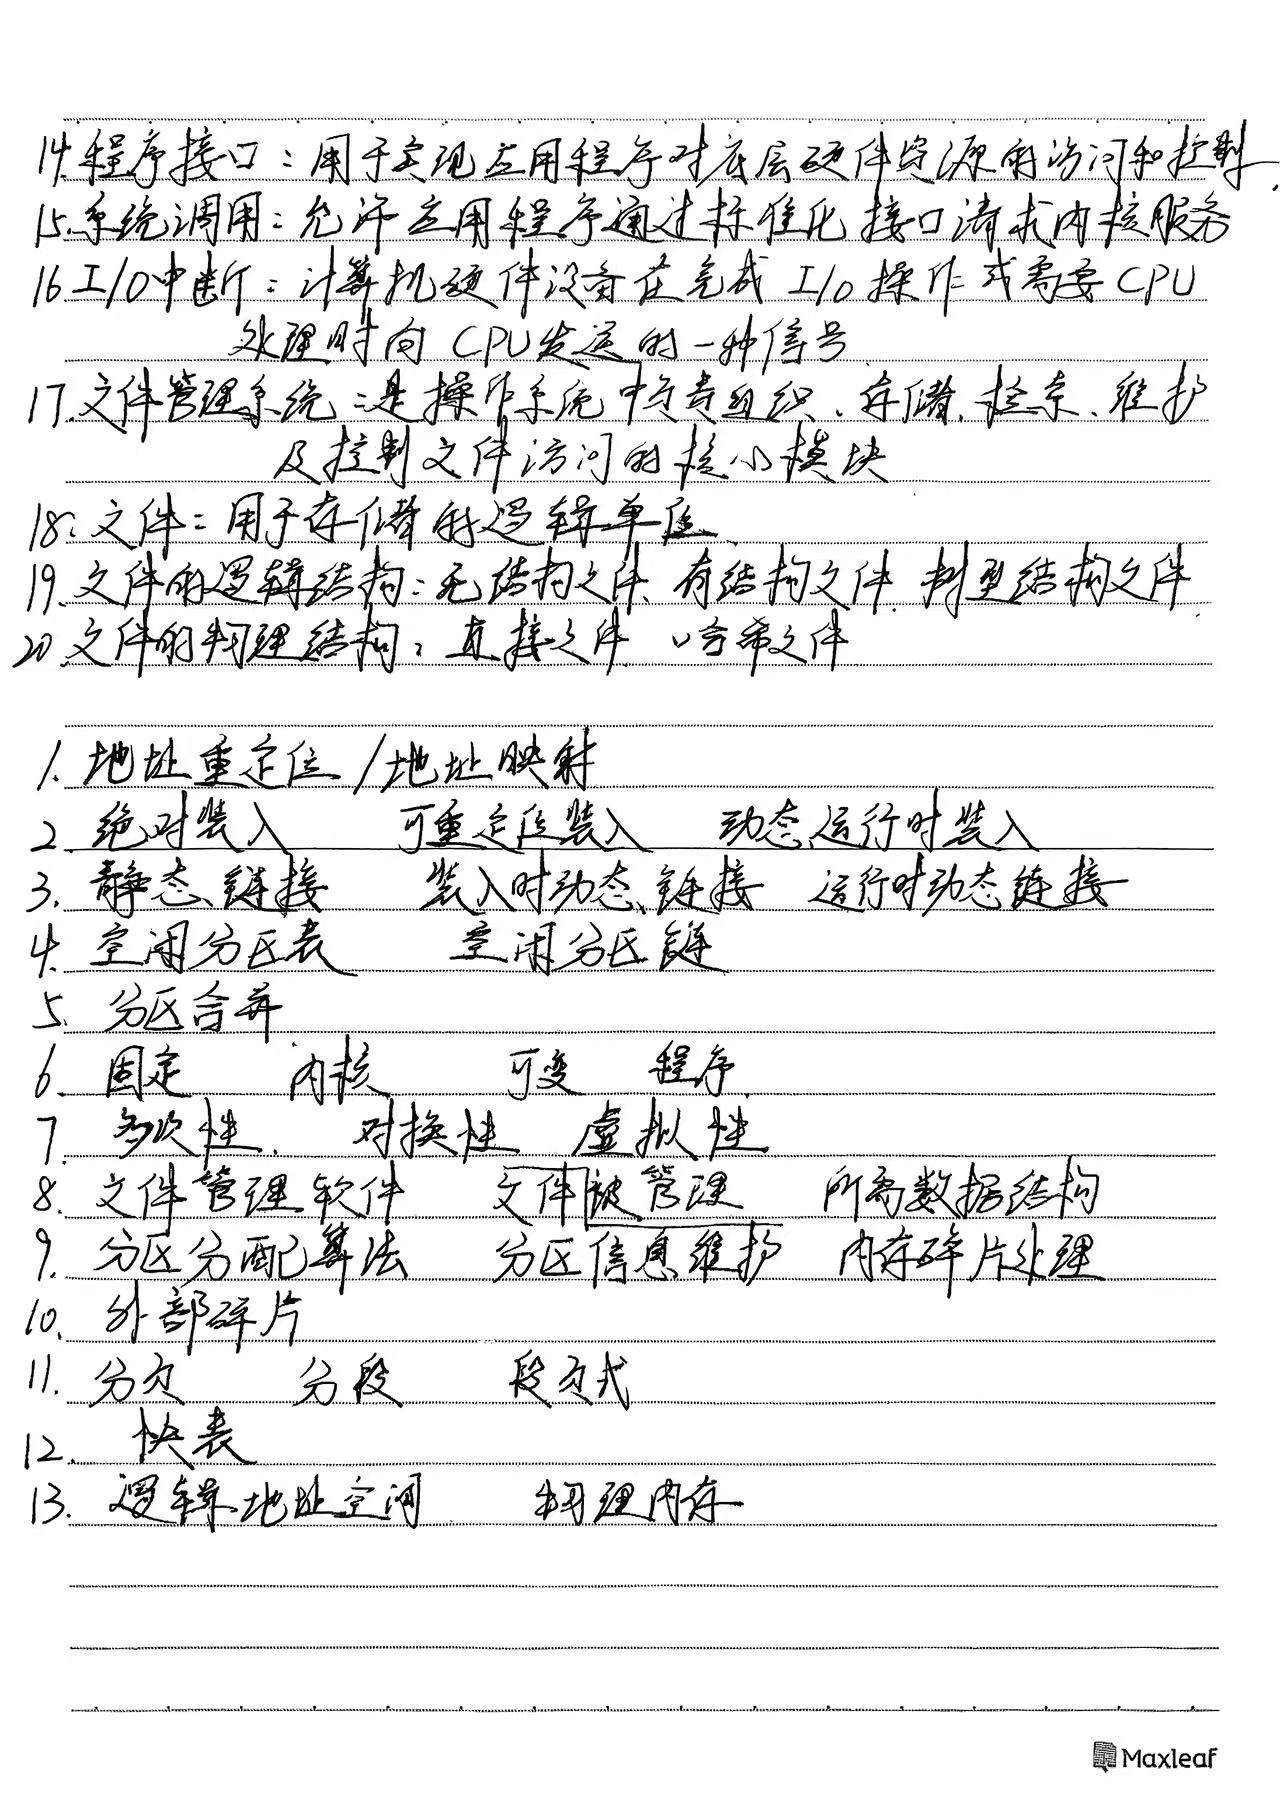 14.程序接口：用于实现应用程序对底层硬件资源的访问和控制.
15.系统调用：允许应用程序通过标准化接口请求内核服务
16 I/O中断：计算机硬件设备在完成 I/O 操作或需要CPU
处理时向 CPU发送的一种信号
17.文件管理系统：是操作系统中负责组织、存储、检索、维护
及控制文件访问的核心模块
18.文件：用于存储的逻辑单位.
19.文件的逻辑结构：无结构文件、有结构文件、树型结构文件
20.文件的物理结构：直接文件、哈希文件
1.地址重定位/地址映射
2.绝对装入 可重定位装入 动态运行时装入
3.静态链接 装入时动态链接 运行时动态链接
4.空闲分区表 空闲分区链
5.分区合并
6.固定 内核 可变 程序
7.多次性 对换性 虚拟性
8.文件管理软件 文件被管理 所需数据结构
9.分区分配算法 分区信息维护 内存碎片处理
10.外部碎片
11.分页 分段 段页式
12.快表
13.逻辑地址空间 物理内存
Maxleaf